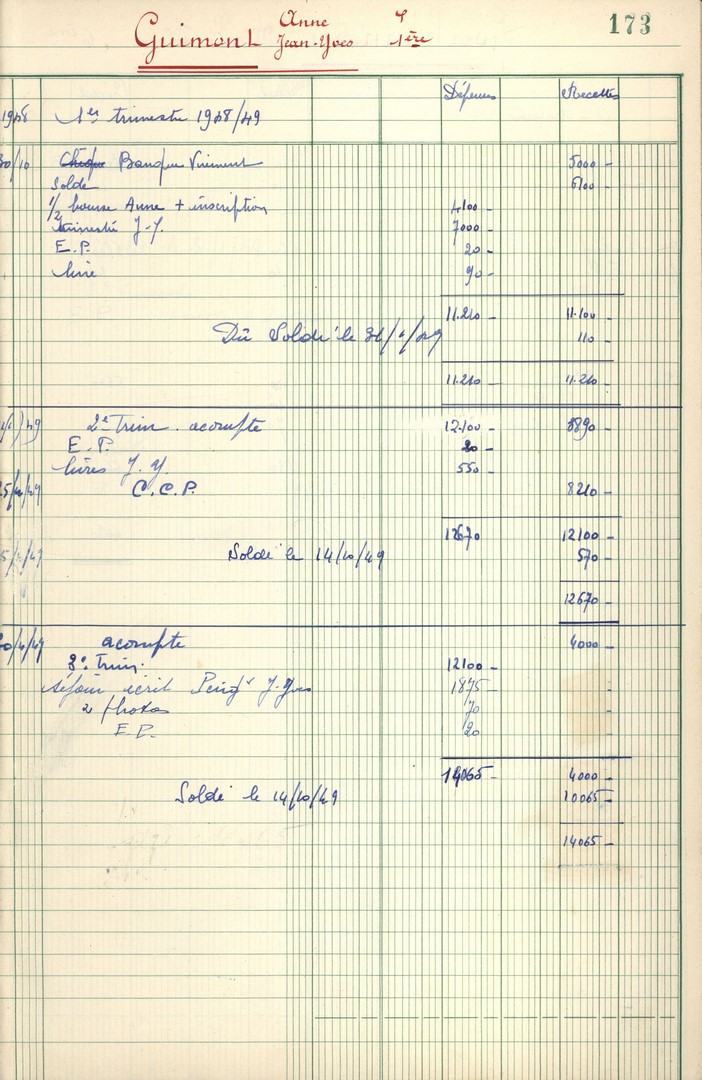 173
Guimont Anne
Jean-Yves 1ère
Dépenses Recettes
1948 1er trimestre 1948/49
30/10 Chèque Banque Virement 5000 -
Solde 6100 -
1/2 bourse Anne + inscription 4100 -
trimestre J-Y. 7000 -
E.P. 20 -
livre 90 -
11.210 - 11.100 -
Dû Soldé le 31/1/49 110 -
11.210 - 11.210 -
/49 2e Trim. acompte 12.100 - 3890 -
E.P. 20 -
livres J.Y. 550 -
C.C.P. 8210 -
12670 12100 -
Soldé le 14/10/49 570 -
12670 -
acompte 4000 -
3e Trim. 12100 -
séjour écrit J-Yves 1875 -
2 photos 70 -
E.P. 20 -
14065 - 4000 -
Soldé le 14/10/49 10065 -
14065 -